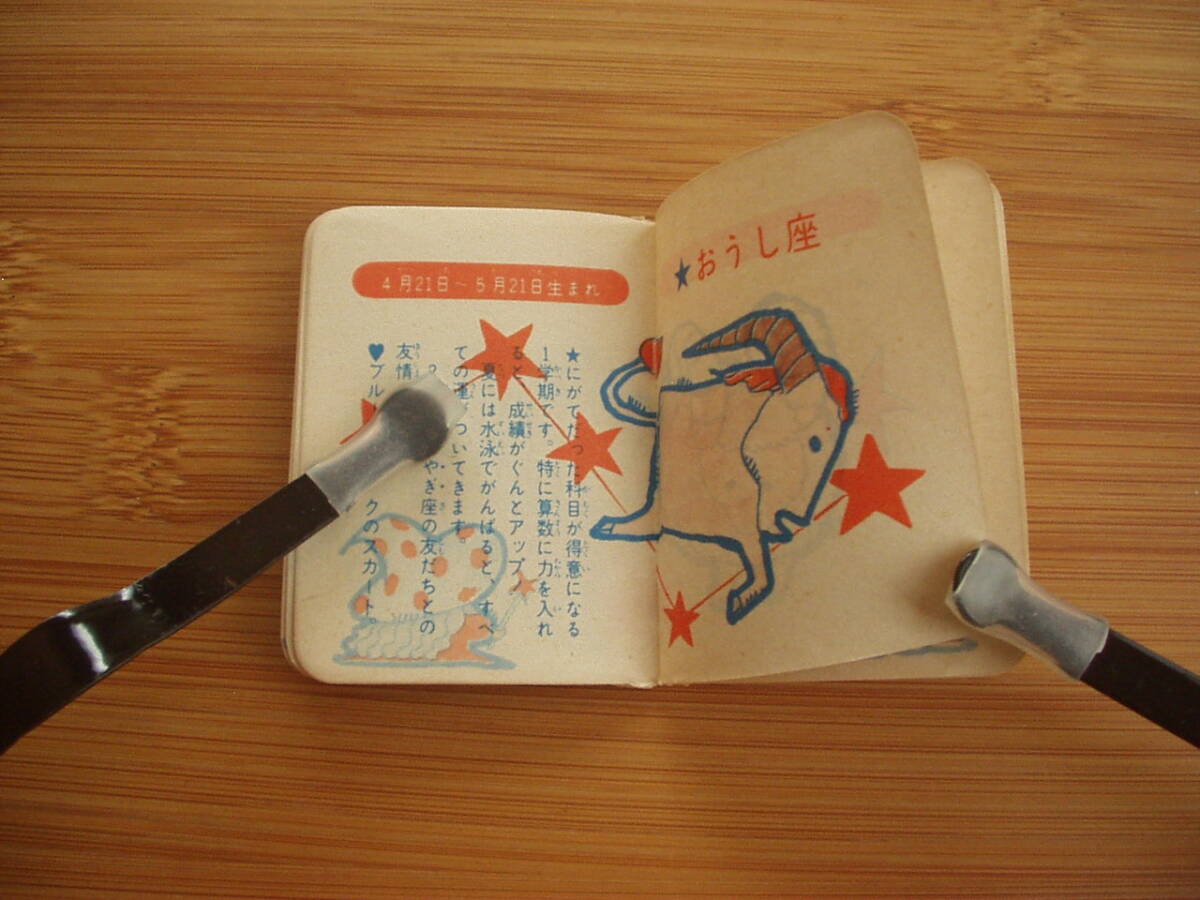 ★おうし座
4月21日~5月21日生まれ
★にがてだった科目が得意になる
1学期です。特に算数に力を入れ
ると、成績がぐんとアップ。
夏には水泳でがんばると、すべ
ての運がついてきます。
やぎ座の友だちとの
友情
♥ブル クのスカート。